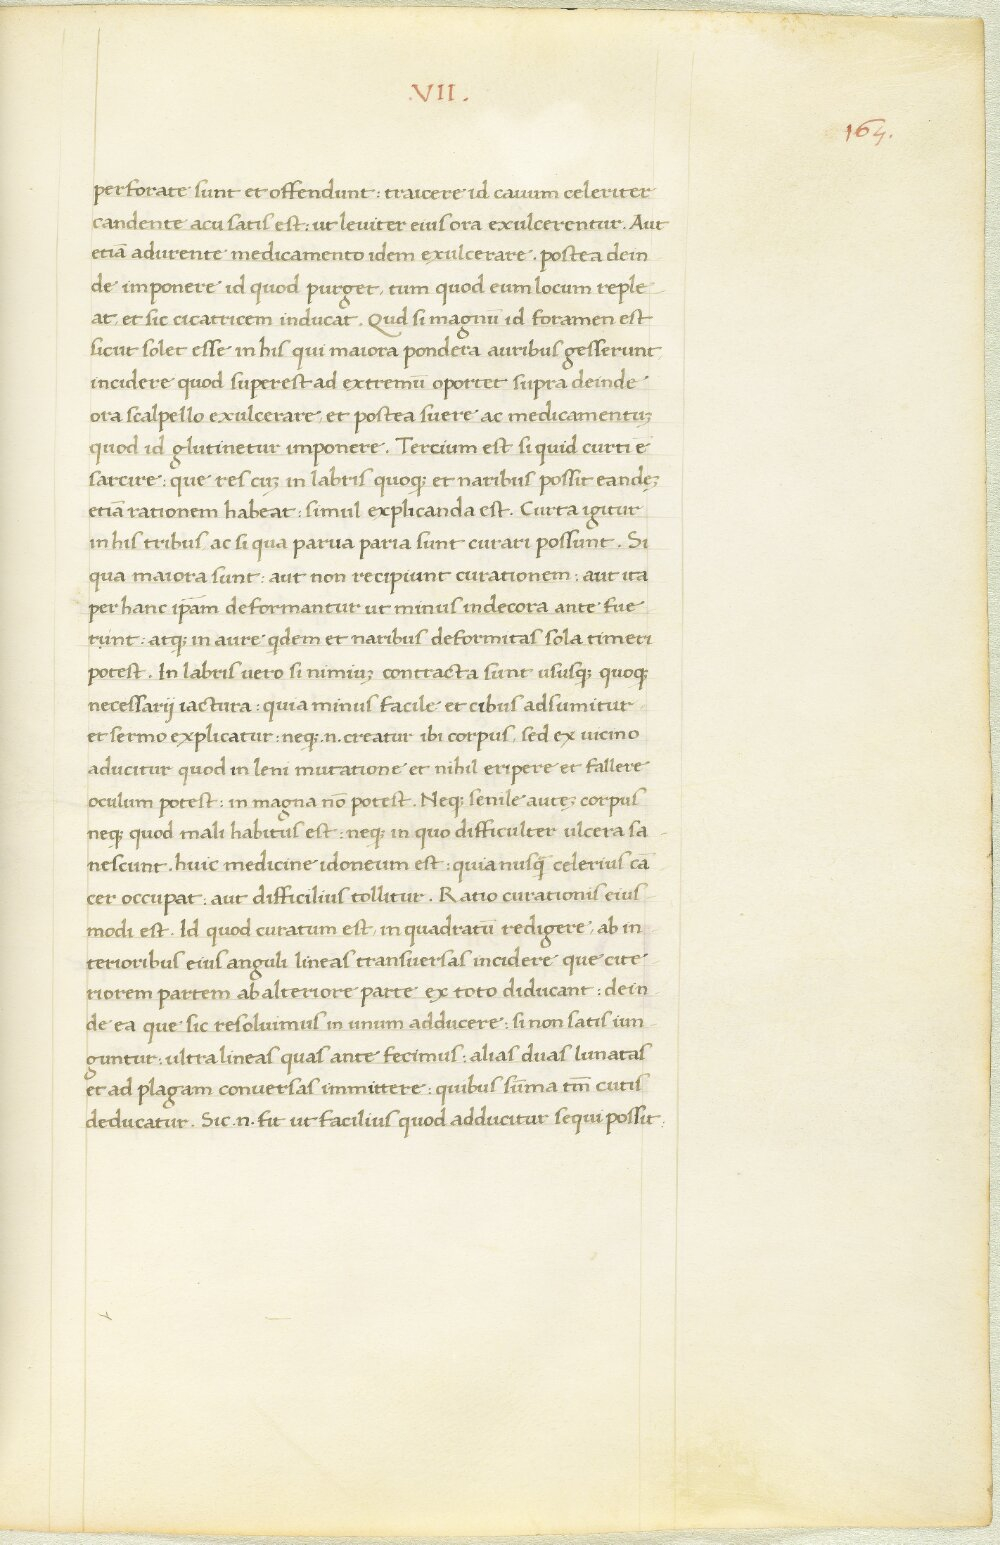 .VII.
164.
perforate sunt et offendunt: traicere id cauum celeriter
candente acu satis est: ut leuiter eius ora exulcerentur. Aut
etiā adurente medicamento idem exulcerare. postea dein
de imponere id quod purget, tum quod eum locum reple
at, et sic cicatricem inducat. Qud si magnū id foramen est
sicut solet esse in his qui maiora pondera auribus gesserunt
incidere quod superest ad extremū oportet supra deinde
ora scalpello exulcerare, et postea suere ac medicamentuꝫ
quod id glutinetur imponere. Tercium est si quid curti ē
sarcire: que res cuꝫ in labris quoqꝫ et naribus possit eandeꝫ
etiā rationem habeat: simul explicanda est. Curta igitur
in his tribus ac si qua parua paria sunt curari possunt. Si
qua maiora sunt: aut non recipiunt curationem: aut ita
per hanc ip̄am deformantur ut minus indecora ante fue
runt: atqꝫ in aure qdem et naribus deformitas sola timeri
potest. In labris uero si nimiuꝫ contracta sunt ususqꝫ quoqꝫ
necessarij iactura: quia minus facile et cibus adsumitur
et sermo explicatur: neqꝫ .n. creatur ibi corpus, sed ex uicino
aducitur quod in leni mutatione et nihil eripere et fallere
oculum potest: in magna nō potest. Neqꝫ senile auteꝫ corpus
neqꝫ quod mali habitus est: neqꝫ in quo difficulter ulcera sa
nescunt. huic medicine idoneum est: quia nusq̄ celerius cā
cer occupat: aut difficilius tollitur. Ratio curationis eius
modi est. Id quod curatum est, in quadratū redigere, ab in
terioribus eius anguli lineas transuersas incidere que cite
riorem partem ab alteriore parte ex toto diducant: dein
de ea que sic resoluimus in unum adducere: si non satis iun
guntur: ultra lineas quas ante fecimus: alias duas lunatas
et ad plagam conuersas immittere: quibus sūma tm̄ cutis
deducatur. Sic .n. fit ut facilius quod adducitur sequi possit.